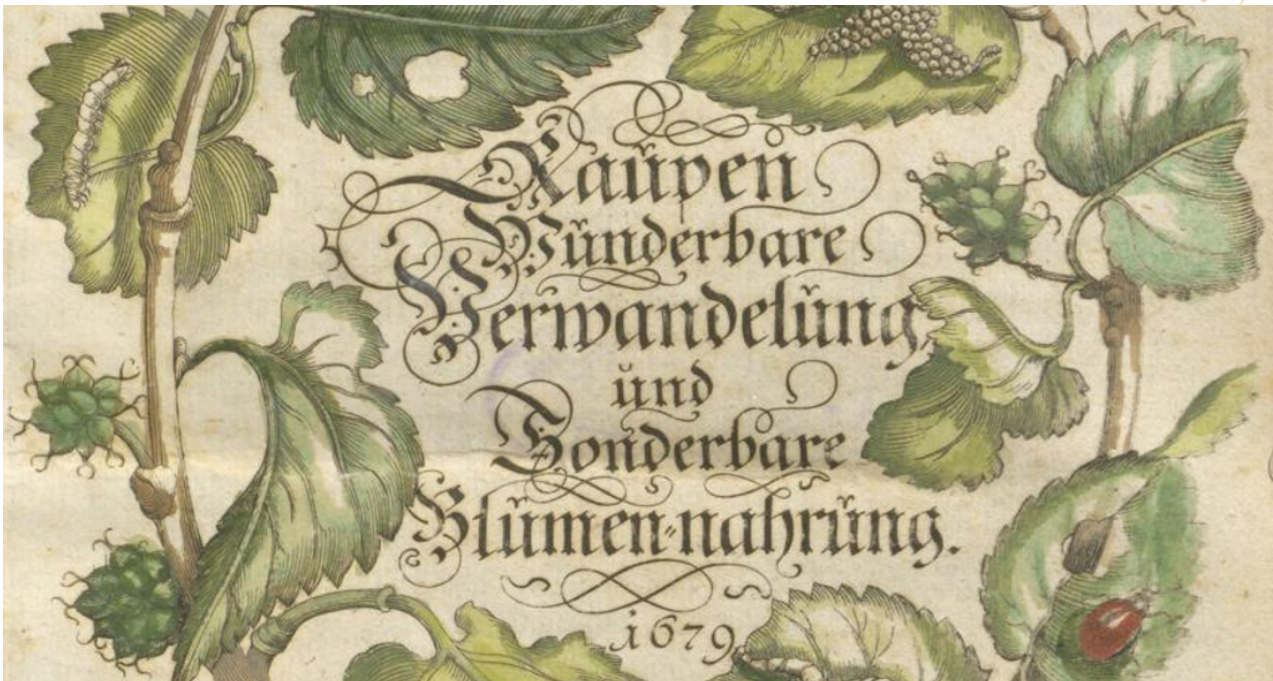 Raupen
Wunderbare
Verwandelung,
und
Sonderbare
Blumen-nahrung.
1679